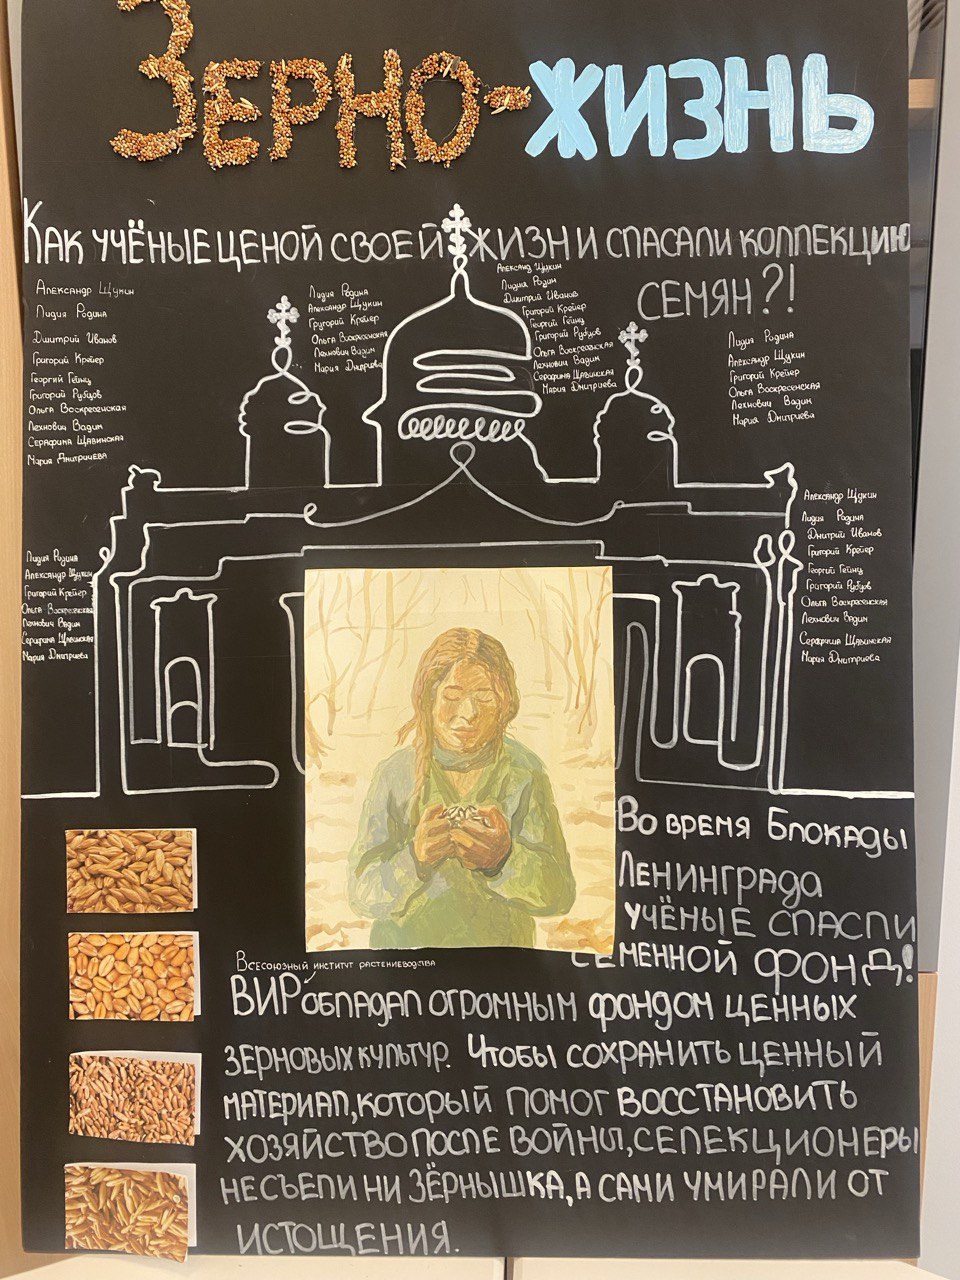 Зерно-жизнь
Как учёные ценой своей жизни спасали коллекцию
семян?!
Александр Щукин
Лидия Родина
Дмитрий Иванов
Григорий Крейер
Георгий Гейнц
Григорий Рубцов
Ольга Воскресенская
Лехнович Вадим
Серафима Щавинская
Мария Дмитриева
Лидия Родина
Александр Щукин
Григорий Крейер
Ольга Воскресенская
Лехнович Вадим
Мария Дмитриева
Александр Щукин
Лидия Родин
Дмитрий Иванов
Григорий Крейер
Георгий Гейнц
Григорий Рубцов
Ольга Воскресенская
Лехнович Вадим
Серафима Щавинская
Мария Дмитриева
Лидия Родина
Александр Щукин
Григорий Крейер
Ольга Воскресенская
Лехнович Вадим
Мария Дмитриева
Лидия Родина
Александр Щукин
Григорий Крейер
Ольга Воскресенская
Лехнович Вадим
Серафима Щавинская
Мария Дмитриева
Александр Щукин
Лидия Родина
Дмитрий Иванов
Григорий Крейер
Георгий Гейнц
Григорий Рубцов
Ольга Воскресенская
Лехнович Вадим
Серафима Щавинская
Мария Дмитриева
Во время Блокады
Ленинграда
учёные спасли
семенной фонд!
Всесоюзный институт растениеводства
ВИР обладал огромным фондом ценных
зерновых культур. Чтобы сохранить ценный
материал, который помог восстановить
хозяйство после войны, селекционеры
не съели ни зёрнышка, а сами умирали от
истощения.